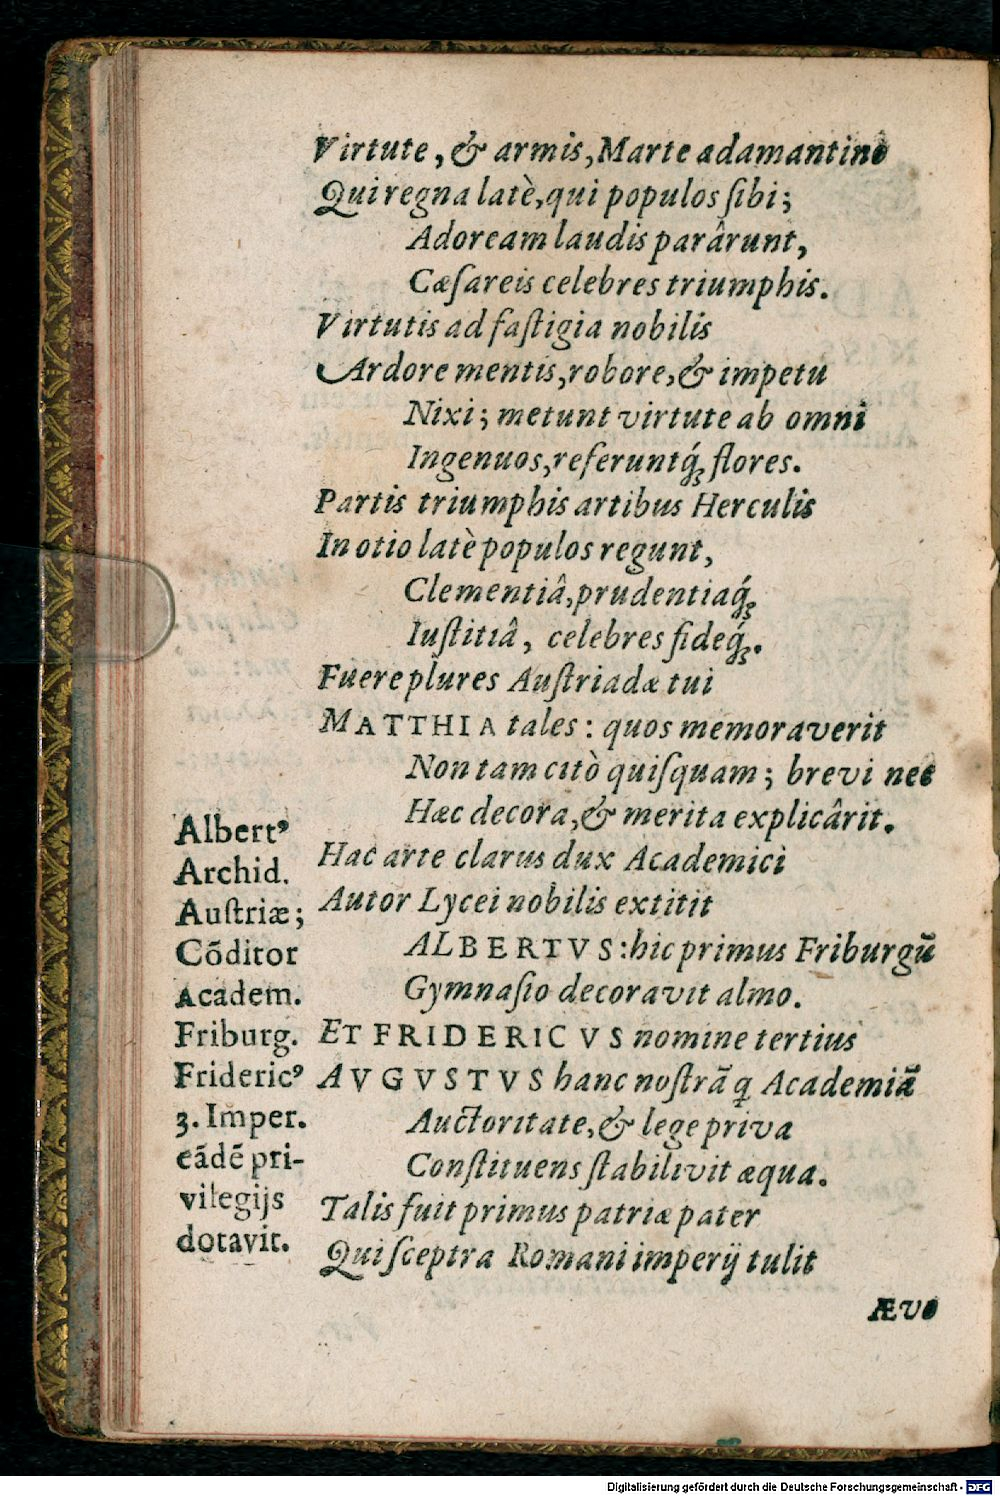 Virtute, & armis, Marte adamantino
Qui regna latè, qui populos ſibi;
Adoream laudis parârunt,
Cæſareis celebres triumphis.
Virtutis ad faſtigia nobilis
Ardore mentis, robore, & impetu
Nixi; metunt virtute ab omni
Ingenuos, referuntq́; flores.
Partis triumphis artibus Herculis
In otio latè populos regunt,
Clementiâ, prudentiaq́;
Iuſtitiâ, celebres fideq́;.
Fuere plures Auſtriadæ tui
MATTHIA tales: quos memoraverit
Non tam citò quiſquam; brevi nec
Hæc decora, & merita explicârit.
Hac arte clarus dux Academici
Autor Lycei nobilis extitit
ALBERTVS: hic primus Friburgũ
Gymnaſio decoravit almo.
ET FRIDERICVS nomine tertius
AVGVSTVS hanc noſtrã q̃ Academiã
Auctoritate, & lege priva
Conſtituens ſtabilivit æqua.
Talis fuit primus patriæ pater
Qui ſceptra Romani imperij tulit
Ævo
Albertꝰ
Archid.
Auſtriæ;
Cõditor
Academ.
Friburg.
Fridericꝰ
3. Imper.
eãdẽ pri-
vilegijs
dotavit.
Digitalisierung gefördert durch die Deutsche Forschungsgemeinschaft - DFG